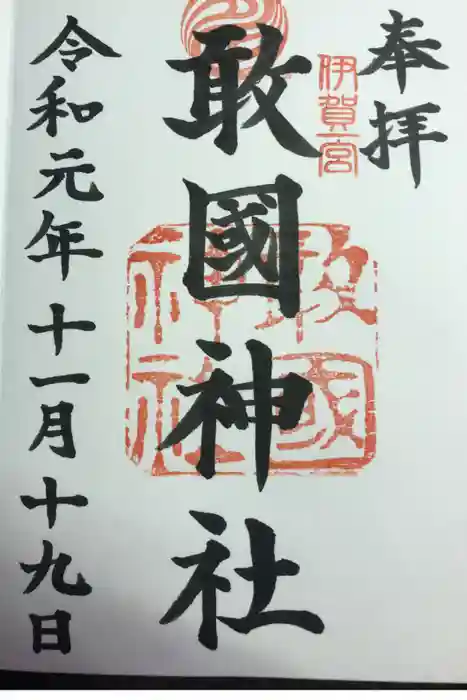 奉拝
伊賀宮
敢國神社
敢國神社
令和元年十一月十九日